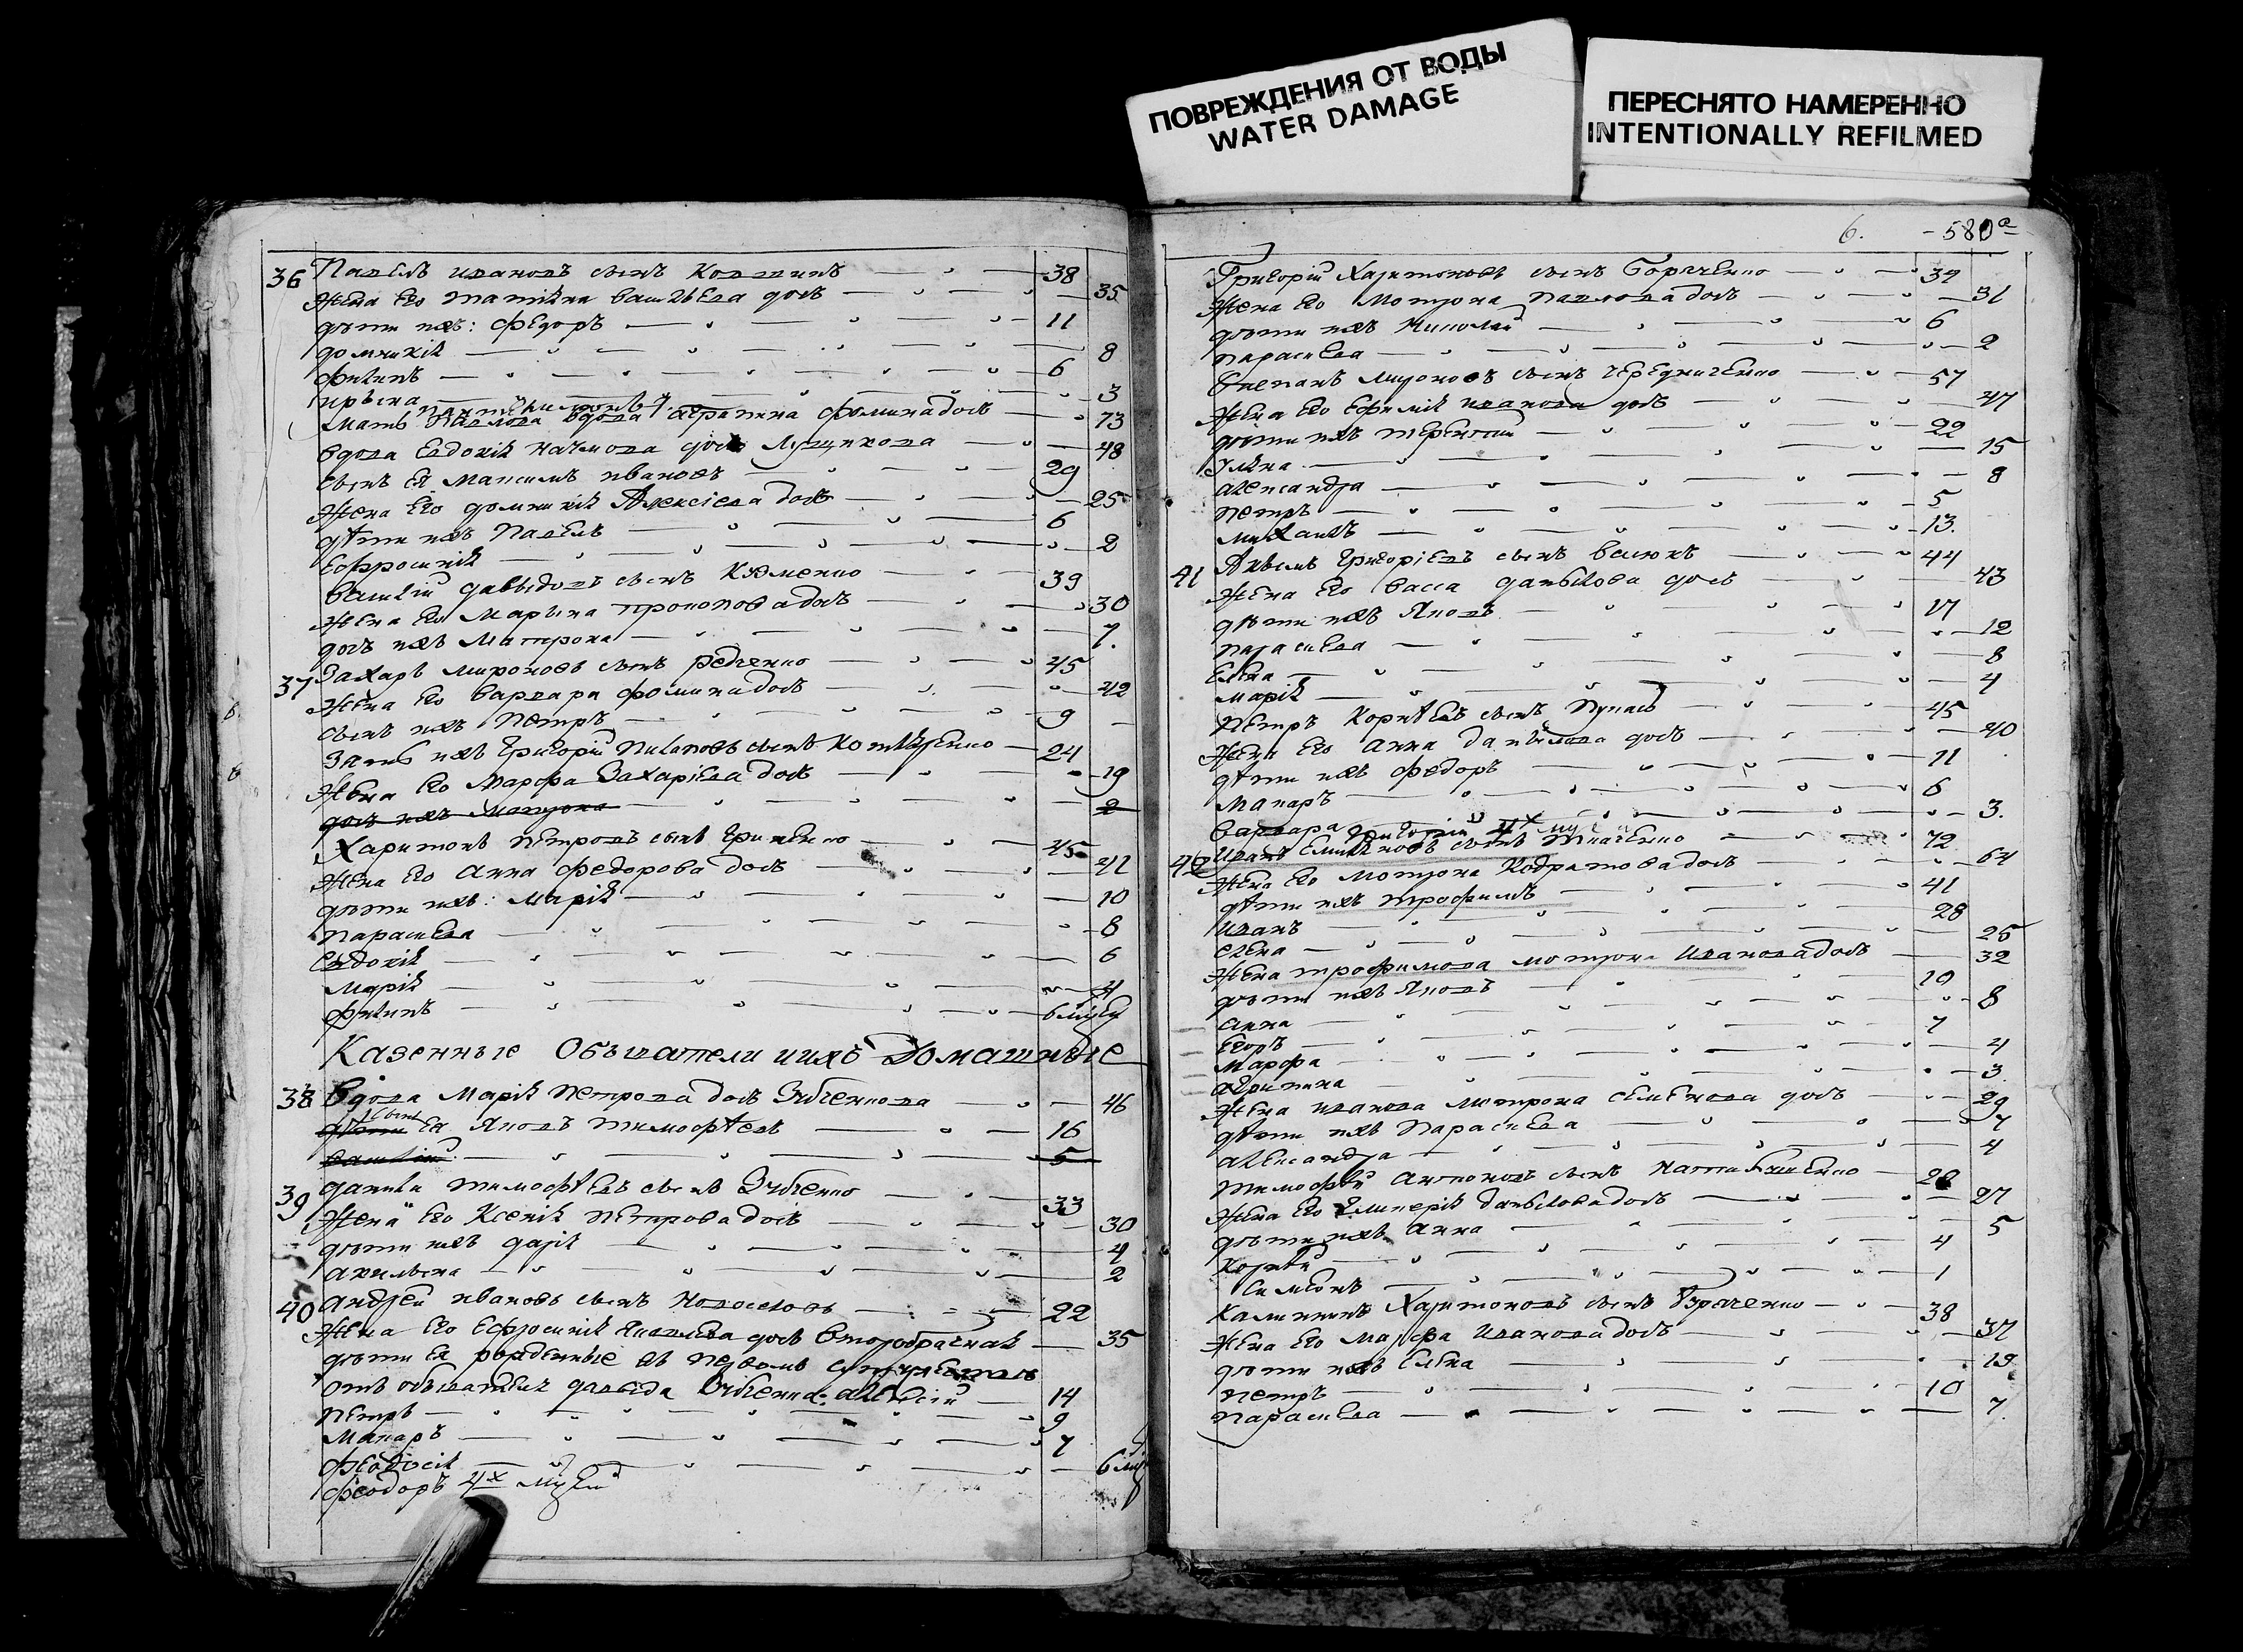 ПОВРЕЖДЕНИЯ ОТ ВОДЫ
WATER DAMAGE
ПЕРЕСНЯТО НАМЕРЕННО
INTENTIONALLY REFILMED
36 Павелъ Ивановъ сынъ 38
Жена его Татияна Васильева дочь 35
дѣти ихъ: Федоръ 11
Домникия 8
Филипъ 6
Ирына 3
Мать Павлова вдова Агрипина Фомина дочь 73
Вдова Евдокия дочь 48
сынъ ея Максимъ Ивановъ 29
Жена его Домникия Алексіева дочь 25
дѣти ихъ Павелъ 6
Ефросиния 2
Василий Давыдовъ сынъ Кузменко 39
Жена его Марына Прокопова дочь 30
дочь ихъ Матрона 7
37 Захаръ Мироновъ сынъ Редченко 45
Жена его Варвара Фомина дочь 42
сынъ ихъ Петръ 9
Зять ихъ Григорій сынъ 24
Жена его Марфа Захаріева дочь 19
дочь ихъ Матрона 2
Харитонъ Петровъ сынъ Гриненко 45
Жена его Анна Федорова дочь 42
дѣти ихъ: Марія 10
Параскева 8
Евдокия 6
Марія 4
Филипъ 6 мцы
Казенные Обыватели и ихъ Домашные
38 Вдова Марія Петрова дочь Зубченкова 46
дѣти сынъ ея Яковъ Тимофѣевъ 16
Василій 5
39 Данила Тимофѣевъ сынъ Зубченко 33
Жена его Ксения Петрова дочь 30
дѣти ихъ Дарія 4
Акилына 2
40 Андрей Ивановъ сынъ Новоселовъ 22
Жена его Ефросиния Яковлева дочь Второбрачная 35
дѣти ея рожденные въ первомъ супружествѣ
отъ обывателя Давыда Зубченка: Алексій 14
Петръ 9
Макаръ 7
Феодосія 6 мцы
Феодоръ 4х мцей
6. 580а
Григорій Харитоновъ сынъ Горяченко 34
Жена его Мотрона Павлова дочь 31
дѣти ихъ Николай 6
Параскева 2
Степанъ Мироновъ сынъ Чередниченко 57
Жена его Ефимія Иванова дочь 47
дѣти ихъ Терентій 22
Улияна 15
Александра 8
Петръ 5
Михаилъ 13
41 Акимъ Григоріевъ сынъ 44
Жена его Васса Данылова дочь 43
дѣти ихъ Яковъ 17
Параскева 12
Елена 8
Марія 4
Петръ Корнѣевъ сынъ 45
Жена его Анна Данилова дочь 40
дѣти ихъ Федоръ 11
Макаръ 6
Варвара 3
Григорій 4х
42 Иванъ сынъ Ткаченко 72
Жена его Мотрона Кодратова дочь 64
дѣти ихъ Трофимъ 41
Иванъ 28
Елена 25
Жена Трофимова Мотрона Иванова дочь 32
дѣти ихъ Яковъ 10
Анна 8
Егоръ 7
Марфа 4
Агрипина 3
Жена Иванова Мотрона Семенова дочь 29
дѣти ихъ Параскева 7
Александра 4
Тимофѣй Антоновъ сынъ 28
Жена его Данылова дочь 27
дѣти ихъ Анна 5
Корнѣй 4
Симеонъ 1
Калиникъ Харитоновъ сынъ Горяченко 38
Жена его Марфа Иванова дочь 37
дѣти ихъ Елена 19
Петръ 10
Параскева 7